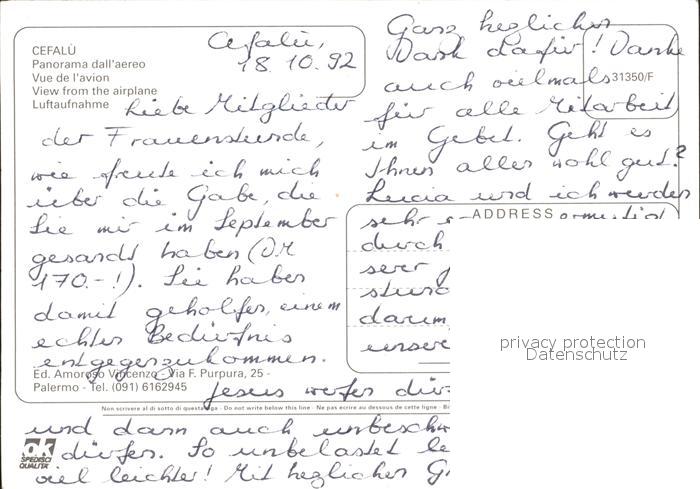 CEFALÙ
Panorama dall'aereo
Vue de l'avion
View from the airplane
Luftaufnahme
Cefalù,
18.10.92
Liebe Mitglieder
der Frauenstunde,
wie freute ich mich
über die Gabe, die
Sie mir im September
gesandt haben (DM
170.-!). Sie haben
damit geholfen, einem
echten Bedürfnis
entgegenzukommen.
Ed. Amoroso Vincenzo - Via F. Purpura, 25 -
Palermo - Tel. (091) 6162945
Ganz herzlichen
Dank dafür! Danke
auch vielmals
31350/F
für alle Mitarbeit
im Gebet. Geht es
Ihnen allen wohl gut?
Lucia und ich wurden
sehr
ADDRESS
durch
serer
darum
unsere
privacy protection
Datenschutz
Jesus werfen dür
Non scrivere al di sotto di questa riga - Do not write below this line - Ne pas ecrire au dessous de cette ligne - Bi
und dann auch unbeschw
dürfen. So unbelastet le
viel leichter! Mit herzlichen G
ok
SPEDISCI
QUALITÀ